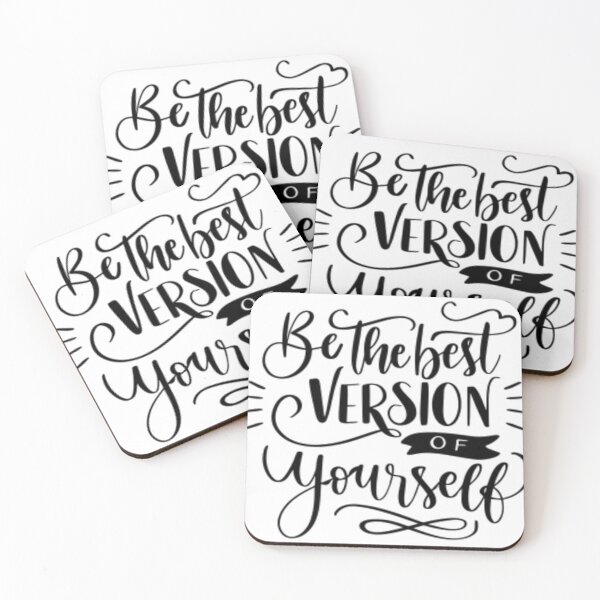 Be the best
VERSION
OF
Be the best
VERSION
OF
yourself
Be the best
VERSION
Be the best
VERSION
OF
yourself